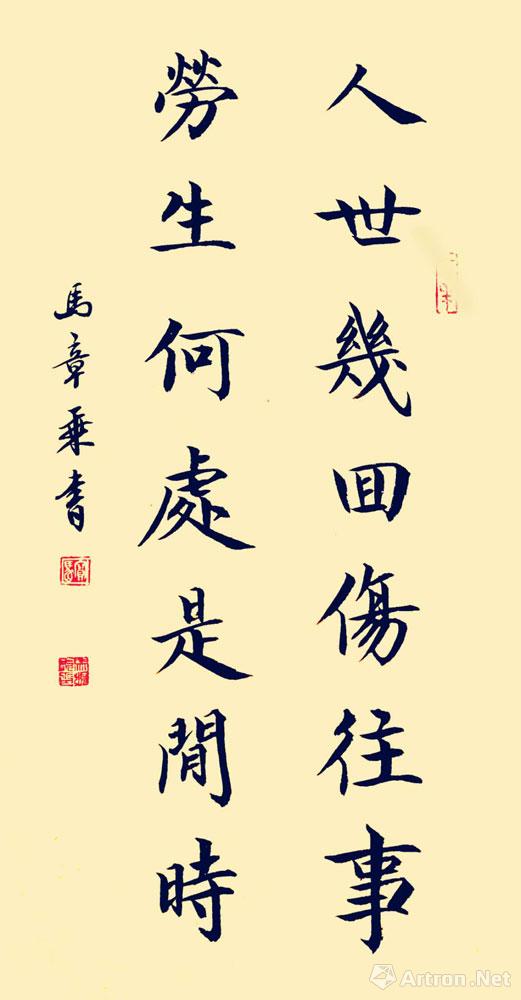 人世幾回傷往事
勞生何處是閒時
馬章乘書
Artron.Net